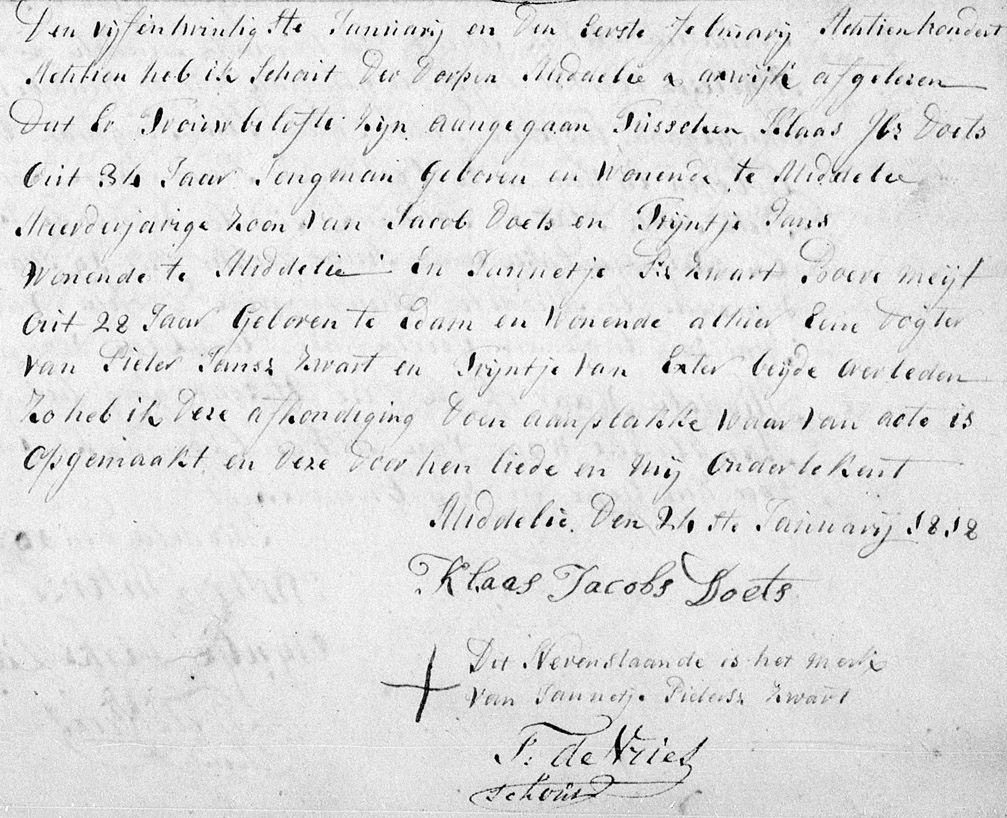 Den vijfentwintigste Januarij en den Eerste Februarij Achtienhondert
Achtien heb ik Schout der Dorpen Middelie afgelesen
dat Er Trouwbelofte zijn aangegaan Tusschen Klaas Jbz Doets
Out 34 Jaar Jongman Geboren en Wonende te Middelie
Meerderjarige zoon van Jacob Doets en Trijntje Jans
Wonende te Middelie En Jannetje Pz Zwart Boere meijt
Out 28 Jaar Geboren te Edam en Wonende alhier Eene dogter
van Pieter Jansz Zwart en Trijntje van Exter beijde overleden
zo heb ik deze afkondiging doen aanplakke waar van acte is
Opgemaakt en deze door hen liede en mij ondertekent
Middelie, Den 24ste Januarij 1818
Klaas Jacobs Doets
Dit Nevenstaande is het merk
van Jannetje Pietersz Zwart
P: de Vries
schout